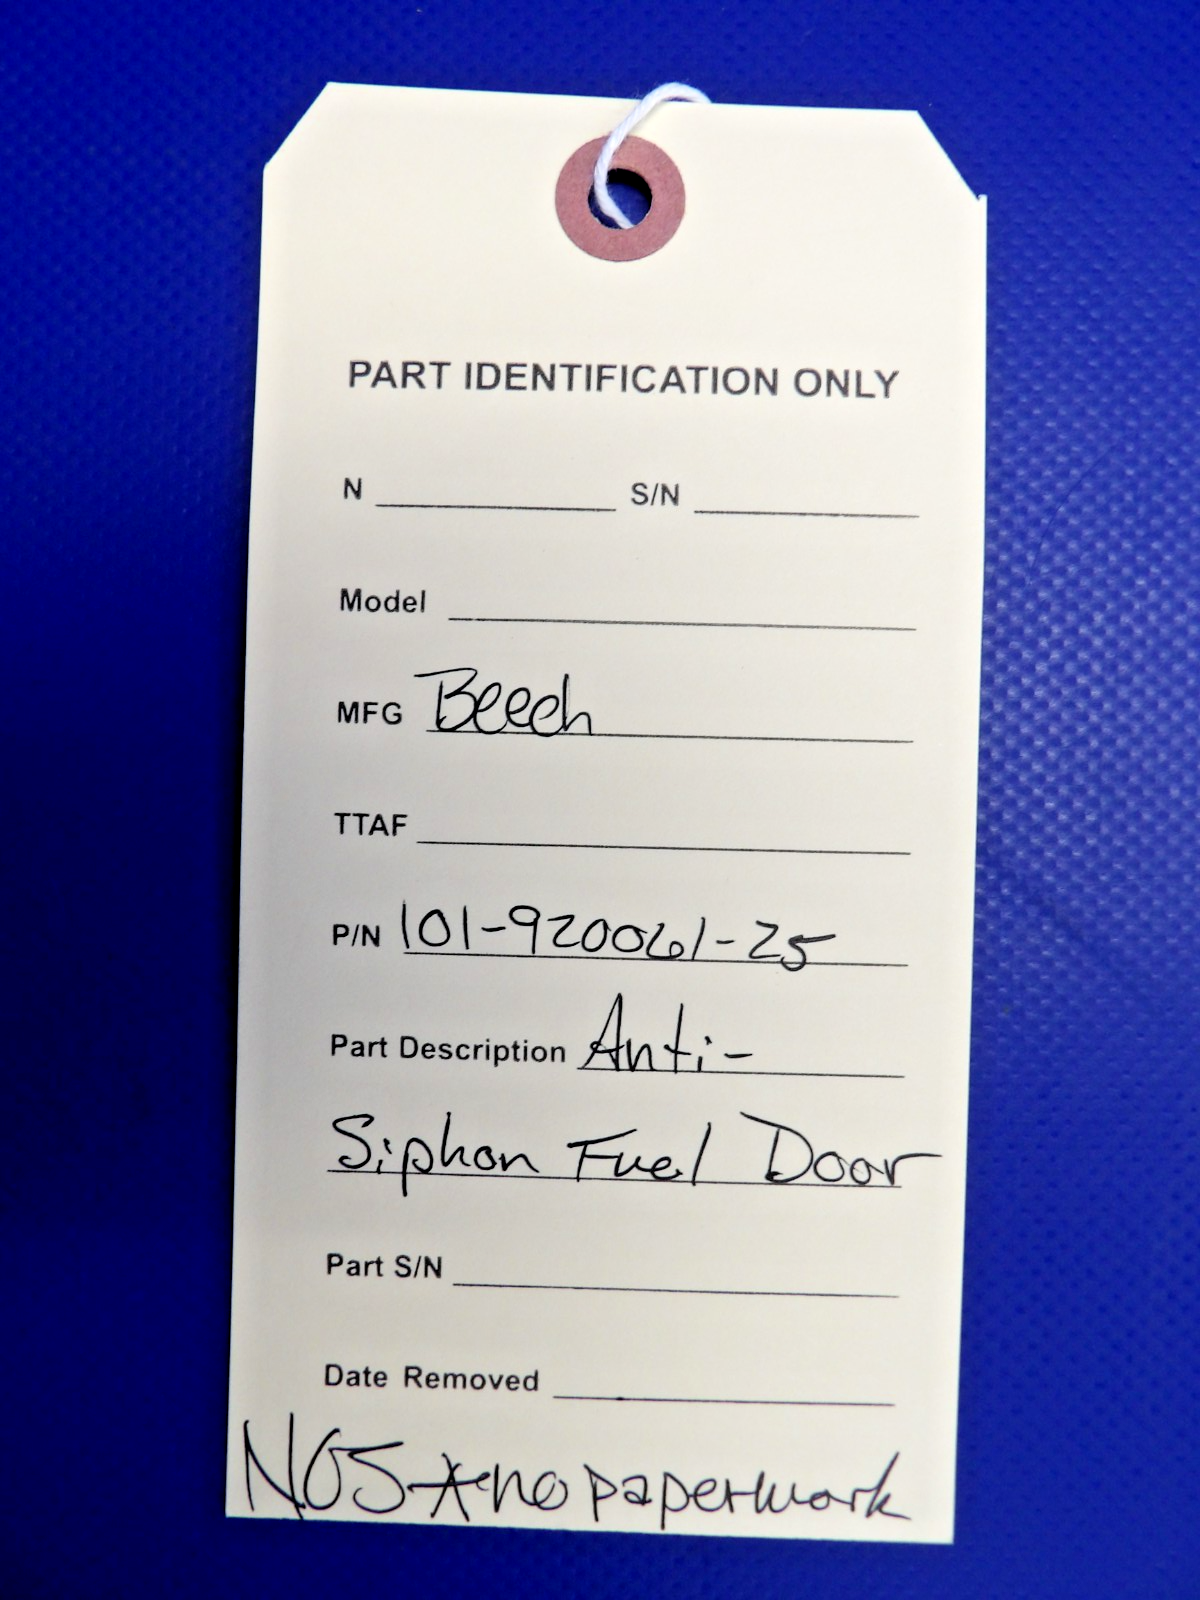 PART IDENTIFICATION ONLY
N S/N
Model
MFG Beech
TTAF
P/N 101-920061-25
Part Description Anti-
Siphon Fuel Door
Part S/N
Date Removed
NOS * no paperwork